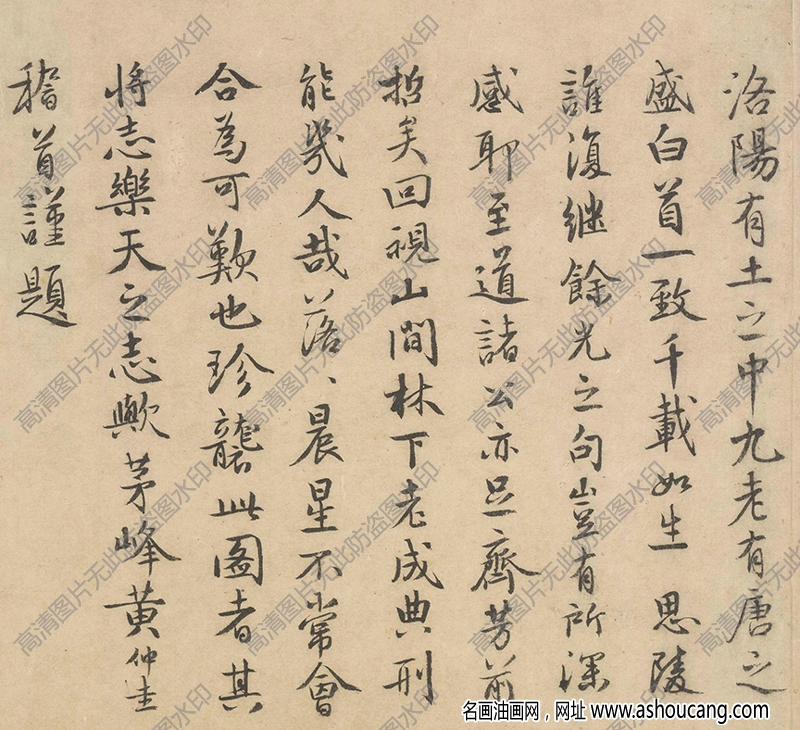 洛陽有土之中九老有唐之
盛白首一致千載如生 思陵
誰復繼餘光之句豈有所深
感耶至道諸公亦足齊芳前
哲矣回視山間林下老成典刑
能幾人哉落〻晨星不常會
合為可歎也珍襲此圖者其
將志樂天之志歟茅峰黃仲圭
稽首謹題
高清图片无此防盗图水印
名画油画网，网址 www.ashoucang.com